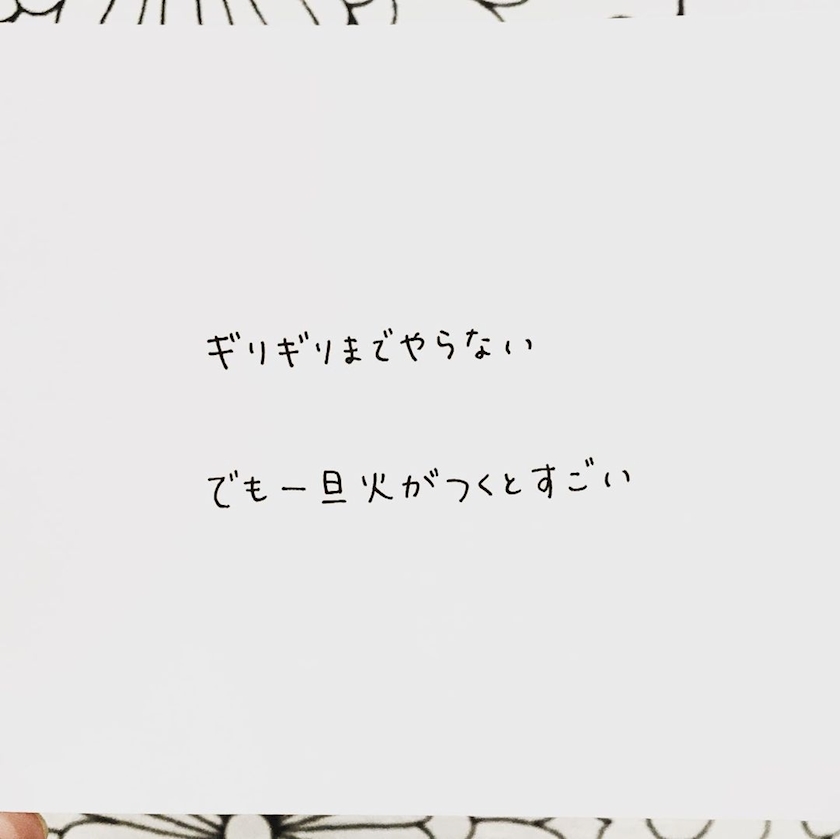 ギリギリまでやらない
でも一旦火がつくとすごい